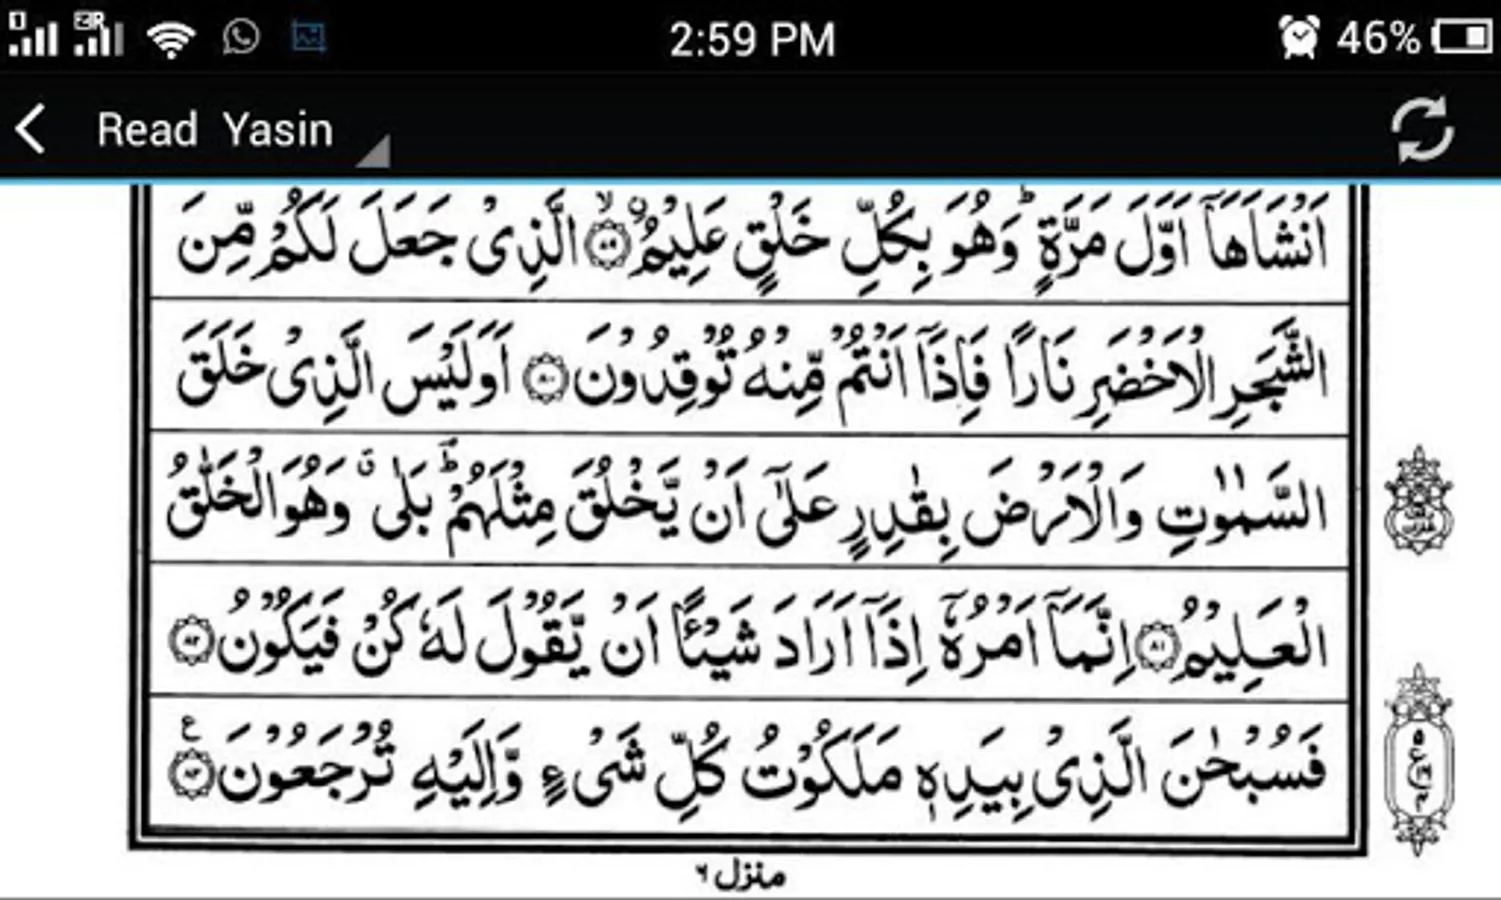 2:59 PM 46%
Read Yasin
اَنْشَاَهَاۤ اَوَّلَ مَرَّةٍؕ وَهُوَ بِكُلِّ خَلْقٍ عَلِيْمُۙ۟ ۷۹ الَّذِىْ جَعَلَ لَكُمْ مِّنَ
الشَّجَرِ الْاَخْضَرِ نَارًا فَاِذَاۤ اَنْتُمْ مِّنْهُ تُوْقِدُوْنَ ۸۰ اَوَلَيْسَ الَّذِىْ خَلَقَ
السَّمٰوٰتِ وَالْاَرْضَ بِقٰدِرٍ عَلٰۤى اَنْ يَّخْلُقَ مِثْلَهُمْؕ بَلٰى ۗ وَهُوَ الْخَلّٰقُ
الْعَلِيْمُ ۸۱ اِنَّمَاۤ اَمْرُهٗۤ اِذَاۤ اَرَادَ شَيْـًٔا اَنْ يَّقُوْلَ لَهٗ كُنْ فَيَكُوْنُ ۸۲
فَسُبْحٰنَ الَّذِىْ بِيَدِهٖ مَلَكُوْتُ كُلِّ شَىْءٍ وَّاِلَيْهِ تُرْجَعُوْنَ ۸۳ ع
منزل ۶